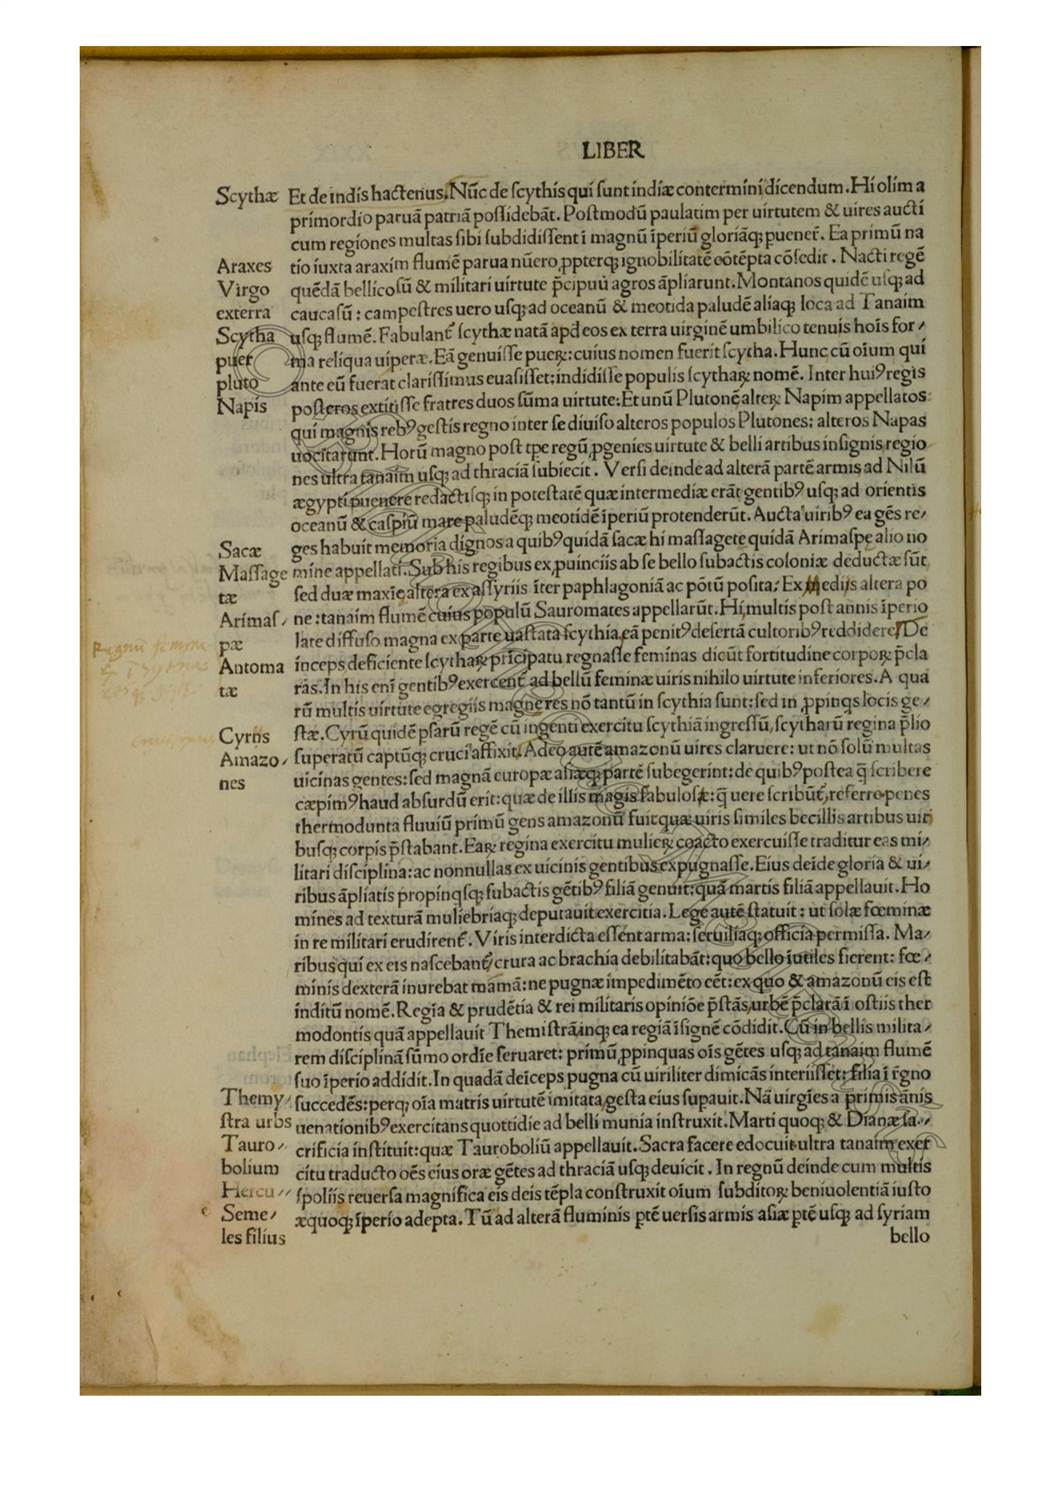 LIBER
Scythæ Et de indis hactenus. Nūc de ſcythis qui ſunt indiæ contermini dicendum. Hi olim a
primordio paruā patriā poſſidebāt. Poſtmodū paulatim per uirtutem & uires aucti
cum regiones multas ſibi ſubdidiſſent ī magnū īperiū gloriāqꝫ
Ea primū na
Araxes tio iuxta araxim flumē parua nūero ꝓpterqꝫ ignobilitatē cōtēpta cōſedit. Nacti regē
Virgo quēdā bellicoſū & militari uirtute p̄cipuū agros āpliarunt. Montanos quidē uſqꝫ ad
exterra caucaſū: campeſtres uero uſqꝫ ad oceanū & meotida paludē aliaqꝫ loca ad Tanaim
Scytha uſqꝫ flumē. Fabulant̄ ſcythæ natā apd eos ex terra uirginē umbilico tenuis hoīs for⸗
puer ma reliqua uiperæ. Eā genuiſſe pueꝝ: cuius nomen fuerit ſcytha. Hunc cū oīum qui
pluto ante eū fuerat clariſſimus euaſiſſet: indidiſſe populis ſcythaꝝ nomē. Inter huiꝰ regis
Napis poſteros extitiſſe fratres duos ſūma uirtute: Et unū Plutonē alteꝝ Napim appellatos
qui magnis rebꝰ geſtis regno inter ſe diuiſo alteros populos Plutones: alteros Napas
uocitarunt. Horū magno poſt tꝑe regū ꝓgenies uirtute & belli artibus inſignis regio
nes ultra tanaim uſqꝫ ad thraciā ſubiecit. Verſi deinde ad alterā partē armis ad Nilū
ægypti puenere redactiſqꝫ in poteſtatē quæ intermediæ erāt gentibꝰ uſqꝫ ad orientis
oceanū & caſpiū mare paludēqꝫ meotidē īperiū protenderūt. Aucta uiribꝰ ea gēs re⸗
Sacæ ges habuit memoria dignos a quibꝰ quidā ſacæ hi maſſagete quidā Arimaſpe alio no
Maſſage mine appellati. Sub his regibus ex ꝓuinciis ab ſe bello ſubactis coloniæ deductæ ſūt
tæ ſed duæ maxīe altera ex aſſyriis īter paphlagoniā ac pōtū poſita: Ex mediis altera po
Arimaſ⸗ ne: tanaim flumē cuius populū Sauromates appellarūt. Hi multis poſt annis īperio
pæ late diffuſo magna ex parte uaſtata ſcythia eā penitꝰ deſertā cultoribꝰ reddidere. De
Antoma inceps deficiente ſcythaꝝ prīcipatu regnaſſe feminas dicūt fortitudine corpoꝝ p̄cla
tæ rās. In his enī gentibꝰ exercent̄ ad bellū feminæ uiris nihilo uirtute inferiores. A qua
rū multis uirtute egregiis magne res nō tantū in ſcythia ſunt: ſed in ꝓpinqs locis ge⸗
Cyrus ſtæ. Cyrū quidē pſarū regē cū ingenti exercitu ſcythiā ingreſſū, ſcytharū regina p̄lio
Amazo⸗ ſuperatū captūqꝫ cruci affixit. Adeo autē amazonū uires claruere: ut nō ſolū multas
nes uicinas gentes: ſed magnā europæ aſiæqꝫ partē ſubegerint: de quibꝰ poſtea q̄ ſcribere
cæpimꝰ haud abſurdū erit: quæ de illis magis fabuloſæ: q̄ uere ſcribūt̄, referro penes
thermodunta fluuiū primū gens amazonū fuit quæ uiris ſimiles becillis artibus uiri
buſqꝫ corpis p̄ſtabant. Eaꝝ regina exercitu mulieꝝ coacto exercuiſſe traditur eas mi⸗
litari diſciplina: ac nonnullas ex uicinis gentibus expugnaſſe. Eius deīde gloria & ui⸗
ribus āpliatis propinqſqꝫ ſubactis gētibꝰ filiā genuit: quā martis filiā appellauit. Ho
mines ad texturā muliebriaqꝫ deputauit exercitia. Legē autē ſtatuit: ut ſolæ fœminæ
in re militari erudirent̄. Viris interdicta eſſent arma: ſeruiliaqꝫ officia permiſſa. Ma⸗
ribus qui ex eis naſcebant̄ crura ac brachia debilitabāt: quo bello īutiles fierent: fœ⸗
minis dexterā inurebat mamā: ne pugnæ impedimēto cēt: ex quo & amazonū eis eſt
inditū nomē. Regīa & prudētia & rei militaris opiniōe p̄ſtās, urbē p̄clarā ī oſtiis ther
modontis quā appellauit Themiſtrā inqꝫ ea regiā īſignē cōdidit. Cū in bellis milita⸗
rem diſciplinā ſūmo ordīe ſeruaret: primū ꝓpinquas oīs gētes uſqꝫ ad tanaim flumē
ſuo īperio addidit. In quadā deīceps pugna cū uiriliter dimicās interiiſſet: filia ī r̄gno
Themy⸗ ſuccedēs: perqꝫ oīa matris uirtutē imitata geſta eius ſupauit. Nā uirgīes a primis ānis
ſtra urbs uenationibꝰ exercitans quottidie ad belli munia inſtruxit. Marti quoqꝫ & Dianæ ſa⸗
Tauro⸗ crificia inſtituit: quæ Tauroboliū appellauit. Sacra facere edocuit ultra tanaim exer
bolium citu traducto oēs eius oræ gētes ad thraciā uſqꝫ deuicit. In regnū deinde cum multis
Hercu⸗ ſpoliis reuerſa magnifica eis deis tēpla conſtruxit oīum ſubditoꝝ beniuolentiā iuſto
Seme⸗ æquoqꝫ īperio adepta. Tū ad alterā fluminis ꝑtē uerſis armis aſiæ ꝑtē uſqꝫ ad ſyriam
les filius bello